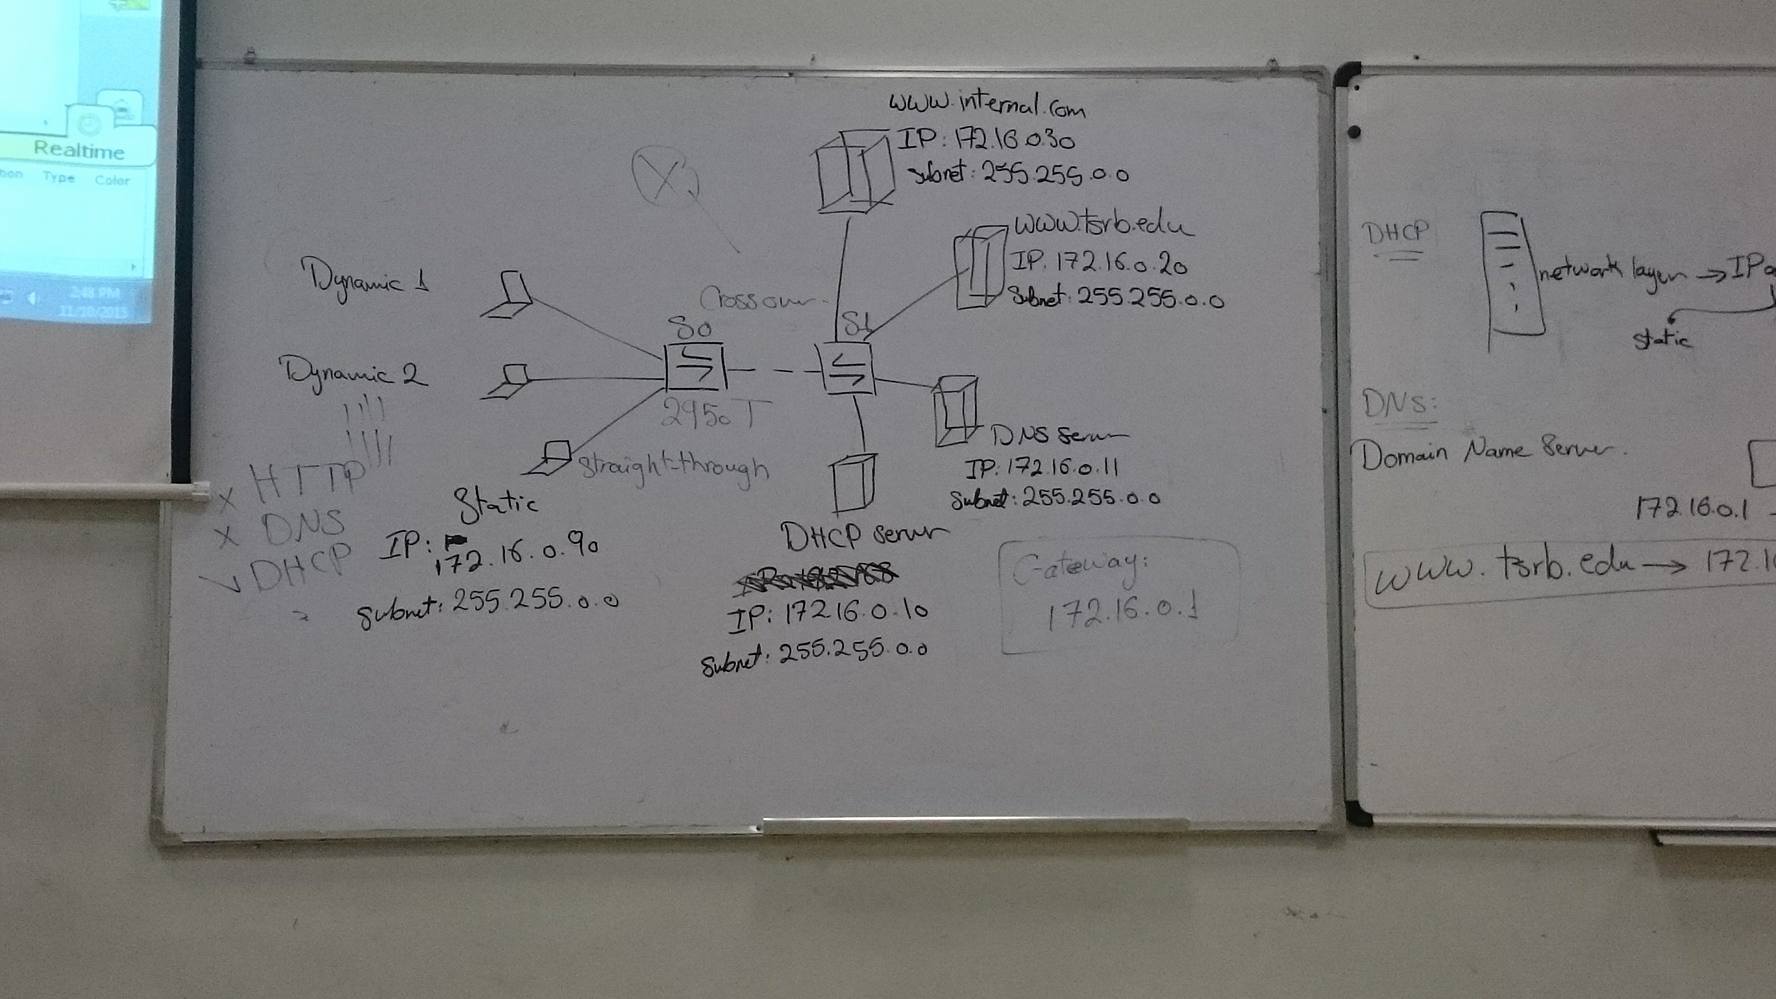 Realtime
Type Color
2:48 PM
11/10/2015
www.internal.com
IP: 172.16.0.30
Subnet: 255.255.0.0
www.tsrb.edu
IP: 172.16.0.20
Subnet: 255.255.0.0
Dynamic 1
Cross over
S0
S1
Dynamic 2
2950T
Straight-through
DNS Server
IP: 172.16.0.11
Subnet: 255.255.0.0
x HTTP
x DNS
✓ DHCP
Static
IP:
172.16.0.90
Subnet: 255.255.0.0
DHCP server
IP: 172.16.0.10
Subnet: 255.255.0.0
Gateway:
172.16.0.1
DHCP
network layer → IP
static
DNS:
Domain Name Server.
172.16.0.1
www.tsrb.edu → 172.16